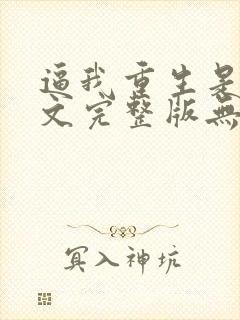 逼我重生是
文完整版無
冥入神坑